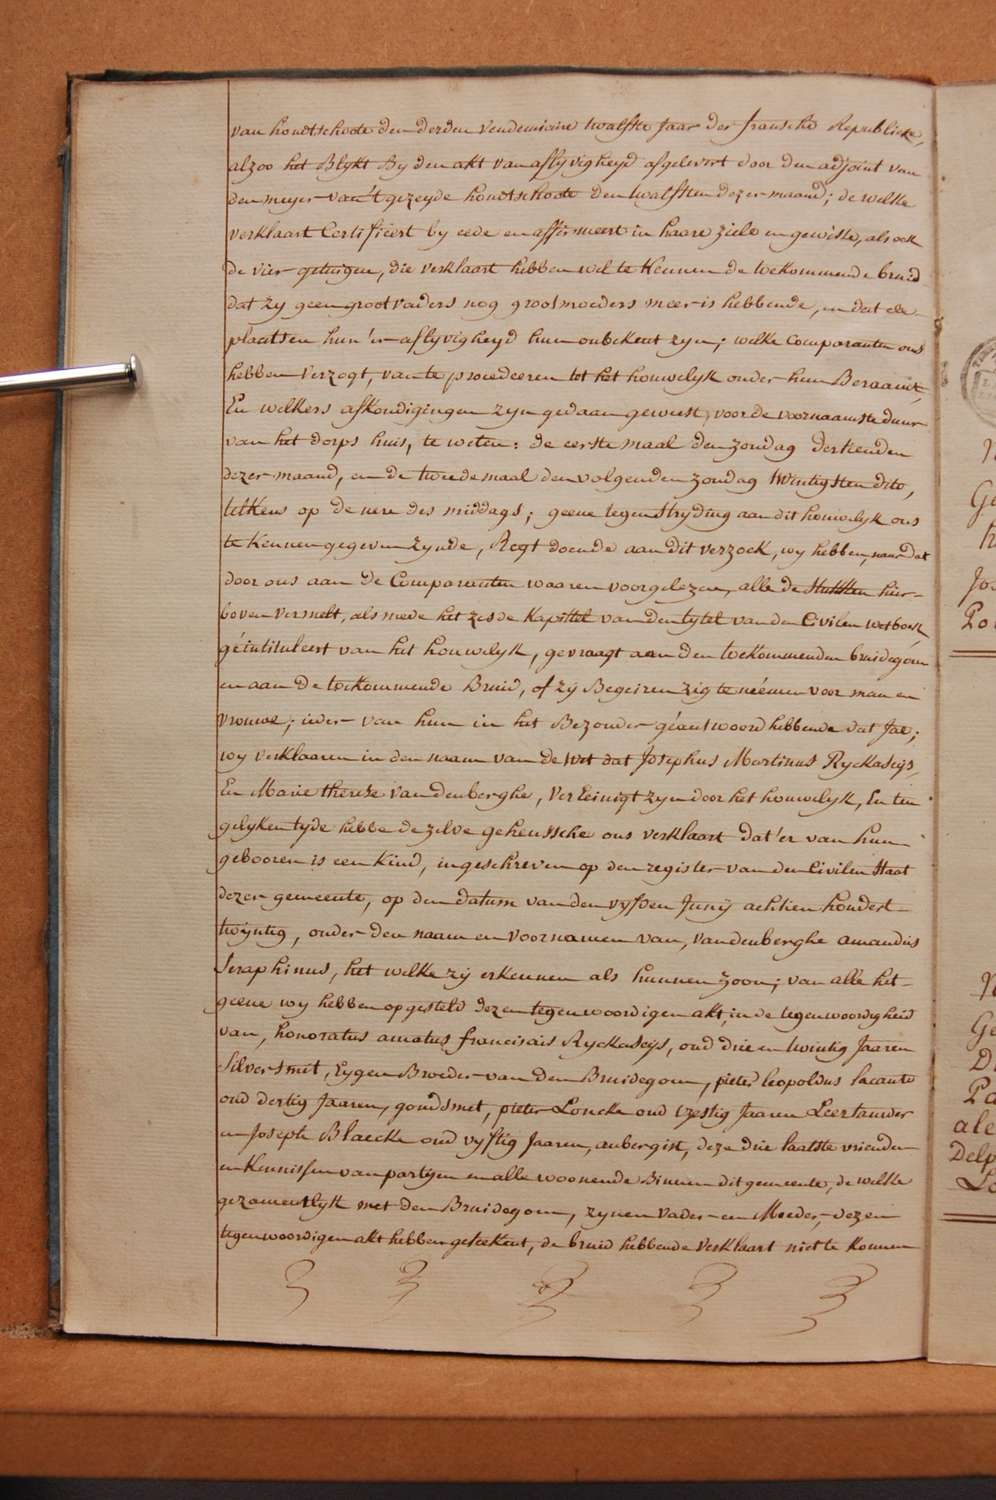 van hondtschoote den derden vendemiaire twalfste Jaar der fransche Republicke,
alzoo het Blykt By den akt van aflyvigheyd afgelevert door den adjoint van
den meyer van 't gezeyde hondtschoote den twalfsten dezer maand; de welke
verklaart Certifieert by eede en affirmeert in haare ziele en gewisse, als ook
de vier getuigen, die verklaart hebben wel te kennen de toekommende bruid
dat zy geen grootvaders nog grootmoeders meer is hebbende, en dat de
plaatsen hun 'er aflyvigheyd hun onbekent zyn; welke Comparanten ons
hebben verzogt, van te procedeeren tot het houwelyk onder hun Beraamt,
En welkers afkondigingen zyn gedaan geweest, voor de voornaamste deure
van het dorps huis, te weten: de eerste maal den zondag dertienden
dezer maand, en de tweede maal den volgenden zondag twintigsten dito,
telkens op de uere des middags; geene tegenstryding aan dit houwelyk ons
te kennen gegeven zynde, Regt doende aan dit verzoek, wy hebben, naer dat
door ons aan de Comparanten waaren voorgelezen, alle de stukken hier-
boven vermelt, als mede het zesde kapittel van den tytel van den Civilen wetboek
géintituleert van het houwelyk, gevraagt aan den toekommenden bruidegom
en aan de toekommende Bruid, of zy Begeiren zig te néemen voor man en
vrouwe; ieder van hun in het Bezonder géantwoord hebbende dat Jae;
wy verklaaren in den naam van de wet dat Josephus Martinus Ryckaseys,
En Marie therese vandenberghe, vereinigt zyn door het houwelyk, En ten
gelyken tyde hebbe dezelve geheussche ons verklaart dat 'er van hun
gebooren is een kind, ingeschreven op den register van den Civilen staat
dezer gemeente, op den datum van den vyfden Junij achtien hondert
twyntig, onder den naam en voornamen van, vandenberghe amandus
Seraphinus, het welke zy erkennen als hunnen zoon; van alle het-
geene wy hebben opgesteld dezen tegenwoordigen akt, in de tegenwoordigheid
van, honoratus amatus francisais Ryckaseys, oud drie en twintig Jaaren
Silversmet, Eygen Broeder van den Bruidegom, pieter leopoldus lacante
oud dertig Jaaren, goudsmet, pieter Loncke oud vzestig Jaaren Leertauwer
en Joseph Blaecke oud vyftig Jaaren, aubergist, deze drie laatste vrienden
en kennissen van partyen en alle woonende Binnen dit gemeente, de welke
gezamentlyk met den Bruidegom, zynen vader en Moeder, dezen
tegenwoordigen akt hebben geteekent, de bruid hebbende verklaart niet te konnen